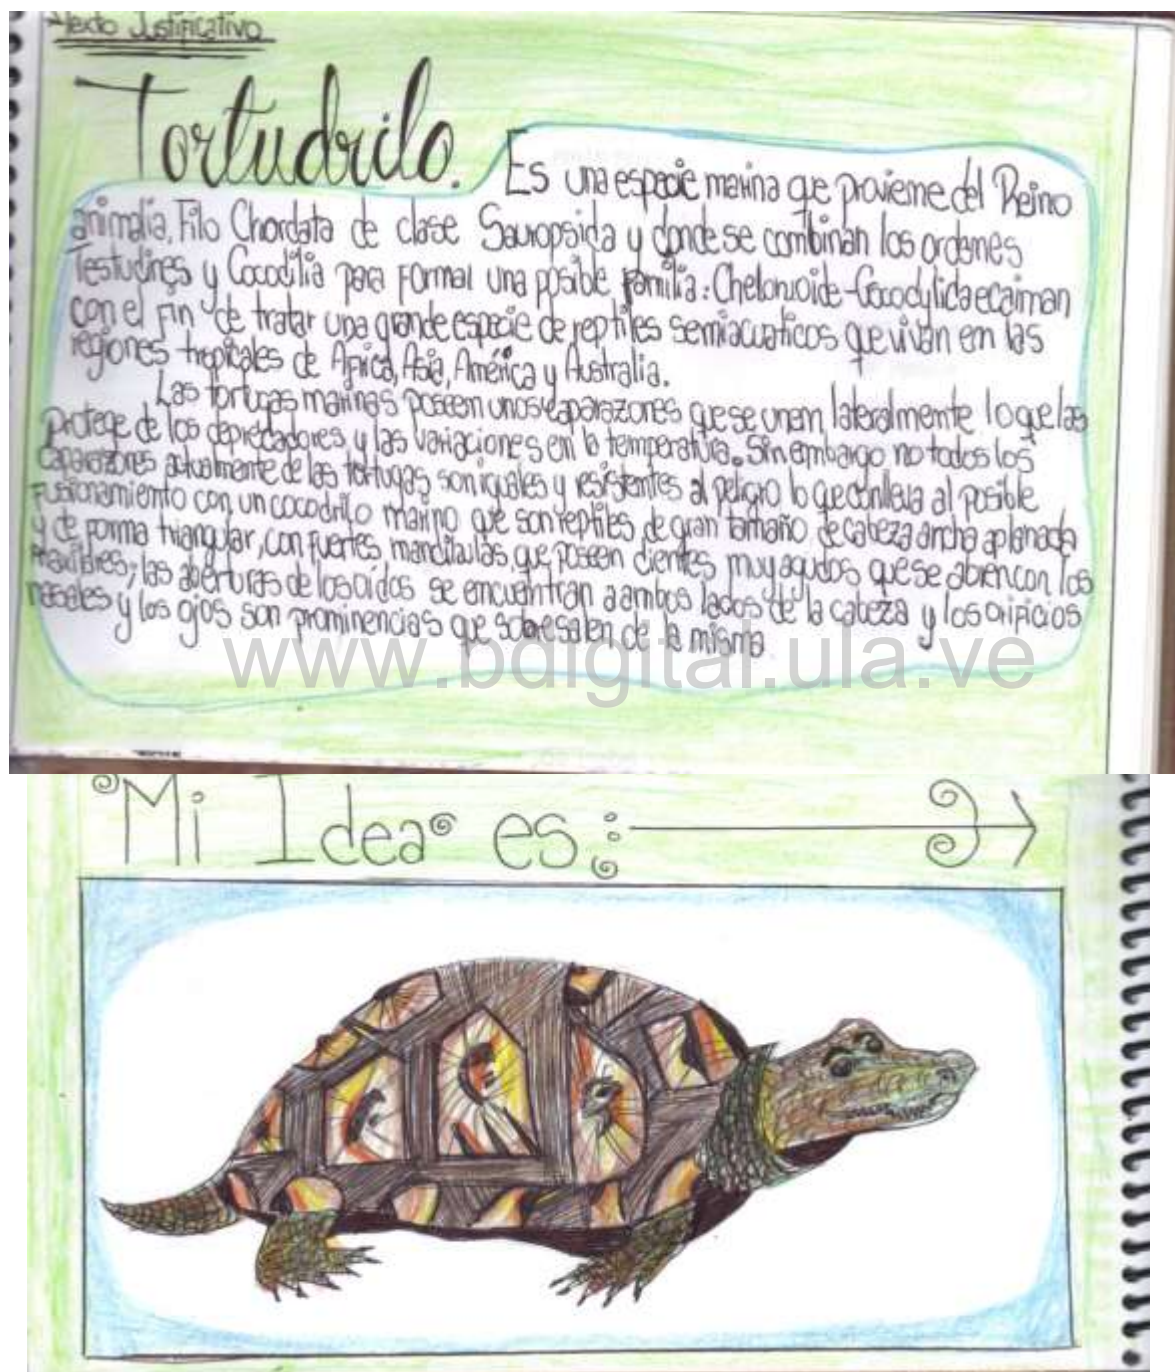 Texto Justificativo
Tortudrilo.
Es una especie marina que proviene del Reino
animalia, Filo Chordata de clase Sauropsida y donde se combinan los ordenes
Testudines y Cocodilia para formal una posible familia: Chelonioide-Cocodylidaecaiman
con el fin de tratar una grande especie de reptiles semiacuaticos que vivan em las
regiones tropicales de Africa, Asia, América y Australia.
Las tortugas marinas poseen unos caparazones que se unem lateralmente lo que las
protege de los depredadores y las variaciones en la temperatura. Sin embargo no todos los
caparazones actualmente de las tortugas son iguales y resistentes al peligro lo que conlleva al posible
fusionamiento con un cocodrilo marino que son reptiles de gran tamaño de cabeza ancha aplanada
y de forma triangular, con fuertes mandibulas, que poseen dientes muy agudos que se abren con los
maxilares; las aberturas de los oidos se encuentran a ambos lados de la cabeza y los orificios
nasales y los ojos son prominencias que sobresalen de la misma
www.bdigital.ula.ve
Mi Idea es: